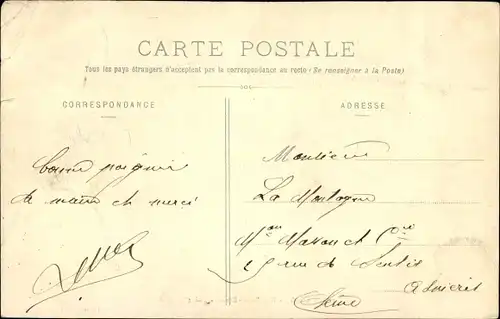 CARTE POSTALE
Tous les pays étrangers n'acceptent pas la correspondance au recto (Se renseigner à la Poste)
CORRESPONDANCE
ADRESSE
bonne poignée
de main et merci
Monsieur
La Montagne
Mon Mavou et Cie
rue de Senlis
Asnières
Seine